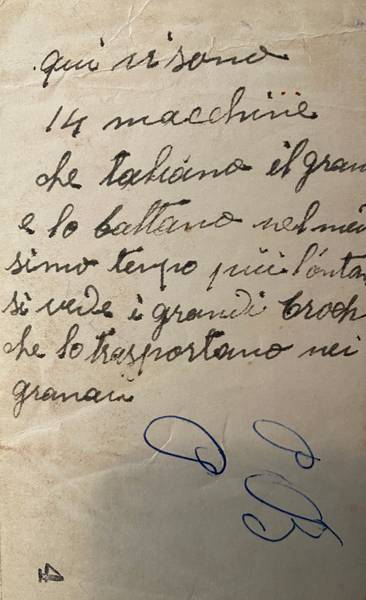 qui vi sono
14 macchine
che tahiano il gran
e lo battano nel mei
simo tenpo più lontan
si vede i grandi troch
che lo trasportano nei
granaii